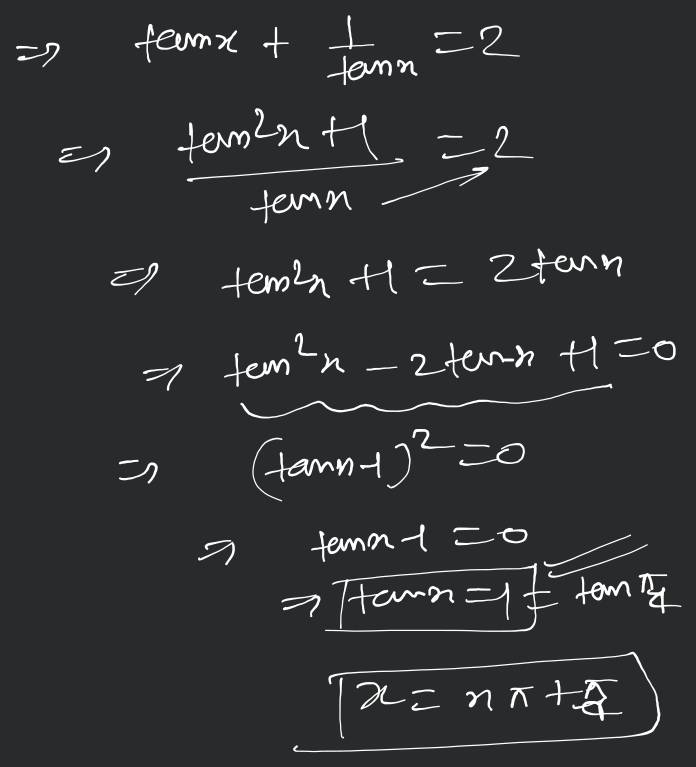 ⇒ tanx + 1/tanx = 2
⇒ tan²x + 1/tanx = 2
⇒ tan²x + 1 = 2tanx
⇒ tan²x - 2tanx + 1 = 0
⇒ (tanx - 1)² = 0
⇒ tanx - 1 = 0
⇒ tanx = 1 = tan π/4
x = nπ + π/4